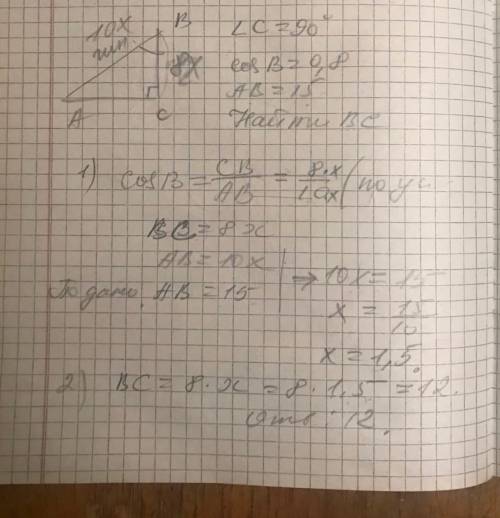 10x
гип.
B
8x
A
C
∠C = 90°
cosB = 0,8
AB = 15
Найти BC
1) cosB = CB/AB = 8·x/10x (по ус
BC = 8x
AB = 10x
По дано AB = 15
→ 10x = 15
x = 15/10
x = 1,5.
2) BC = 8·x = 8·1,5 = 12.
Отв: 12.